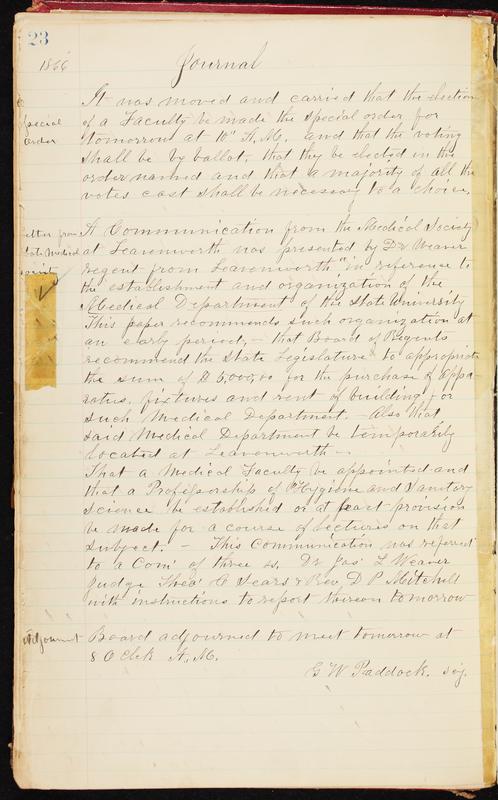 23
1866 Journal
It was moved and carried that the election
Special of a Faculty be made the special order for
order tomorrow at 10" A.M. and that the voting
shall be by ballot, that they be elected in the
order named and that a majority of all the
votes cast shall be necessary to a choice.
A Communication from the Medical Society
at Leavenworth was presented by Dr Weaver
regent from Leavenworth "in reference to
the establishment and organization of the
Medical Department of the State University
This paper recommends such organization at
an early period, - that Board of Regents
recommend the State Legislature to appropriate
the sum of $ 5,000,00 for the purchase of appa-
ratus, fixtures and rent of building, for
such Medical Department. Also that
said Medical Department be temporarily
located at Leavenworth -
That a Medical Faculty be appointed and
that a Professorship of "Hygiene and Sanitary
Science" be established or at least provision
be made for a course of lectures on that
subject. - This Communication was referred
to a Com' of three as, Dr Jas' L Weaver
Judge Theo' C Sears & Rev. D P Mitchell
with instructions to report thereon tomorrow
Adjournt Board adjourned to meet tomorrow at
8 O Clck A. M.
G W Paddock.